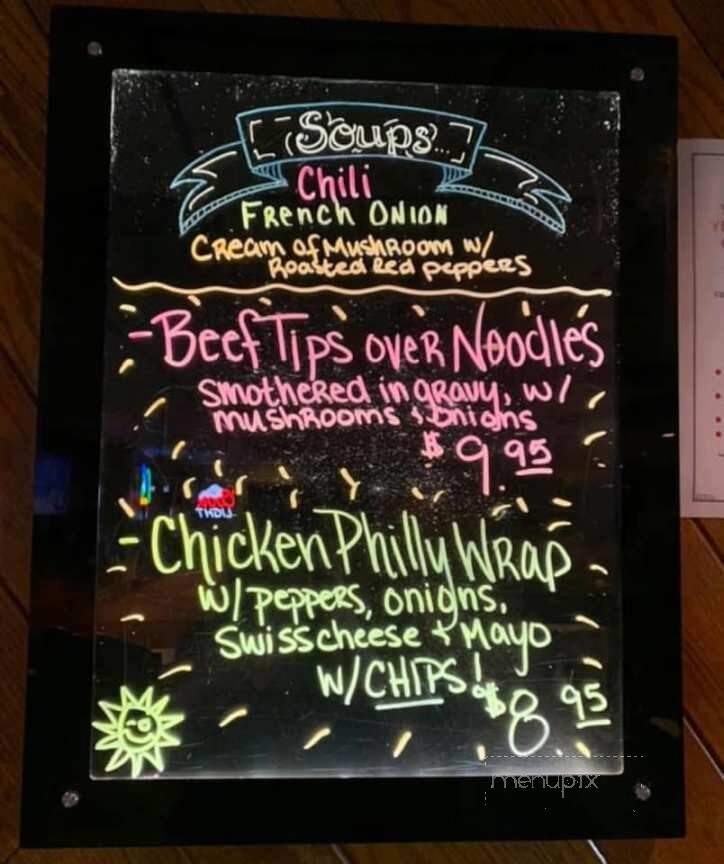 Soups...
Chili
French Onion
Cream of Mushroom w/
Roasted Red peppers
-Beef Tips over Noodles
smothered in gravy, w/
mushrooms & onions
$9.95
-Chicken Philly Wrap
w/peppers, onions,
Swiss cheese + Mayo
w/CHIPS!
$8.95
menupix